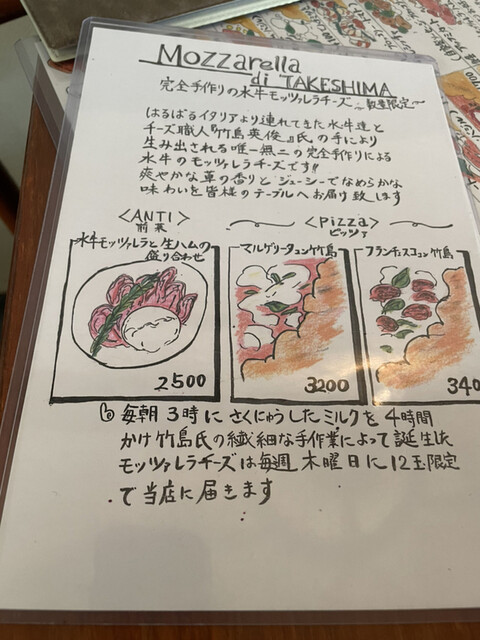 Mozzarella
di TAKESHIMA
完全手作りの水牛モッツァレラチーズ 〜数量限定〜
はるばるイタリアより連れてきた水牛達と
チーズ職人『竹島英俊』氏の手により
生み出される唯一無二の完全手作りによる
水牛のモッツァレラチーズです!!
爽やかな草の香りとジューシーでなめらかな
味わいを皆様のテーブルへお届け致します
<ANTI>
前菜
<Pizza>
ピッツァ
水牛モッツァレラと生ハムの
盛り合わせ
2500
マルゲリータコン竹島
3200
フランチェスコン竹島
340
毎朝3時にさくにゅうしたミルクを4時間
かけ竹島氏の繊細な手作業によって誕生した
モッツァレラチーズは毎週木曜日に12玉限定
で当店に届きます